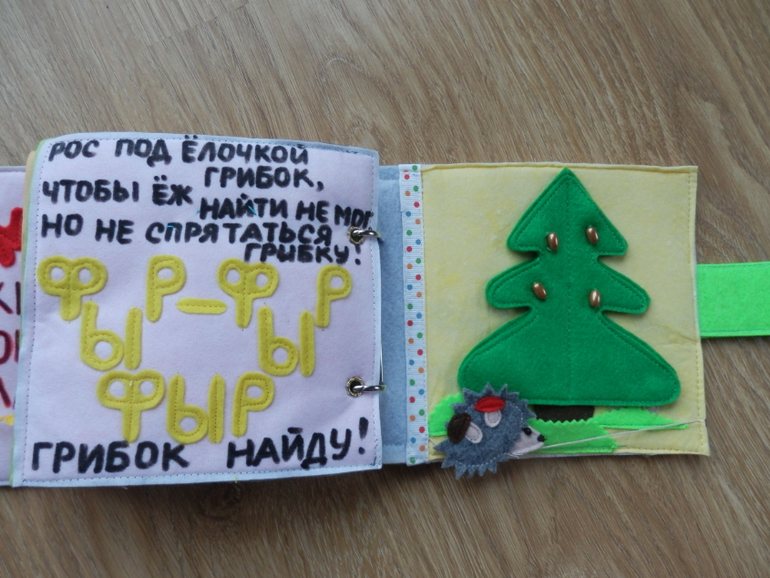 РОС ПОД ЁЛОЧКОЙ
ГРИБОК,
ЧТОБЫ ЁЖ НАЙТИ НЕ МОГ
НО НЕ СПРЯТАТЬСЯ
ГРИБКУ!
ФЫР-ФЫР
ФЫР
ГРИБОК НАЙДУ!